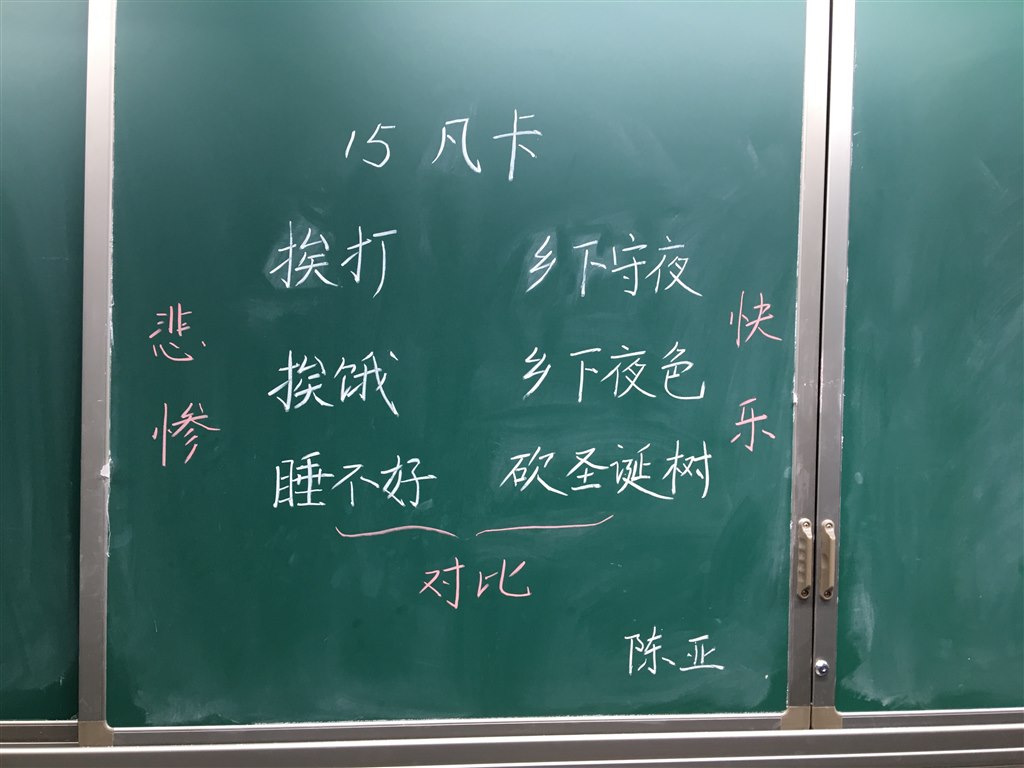 15 凡卡
挨打 乡下守夜
悲惨 快乐
挨饿 乡下夜色
睡不好 砍圣诞树
对比
陈亚